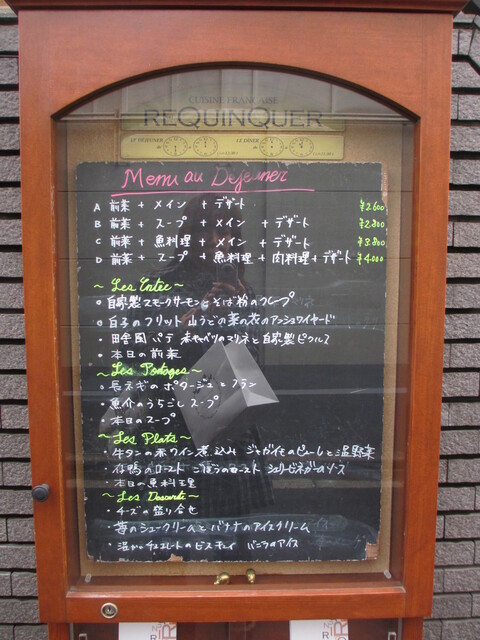 CUISINE FRANÇAISE
REQUINQUER
LE DEJEUNER LE DINER
Menu au Dejeuner
A 前菜 + メイン + デザート ¥2.600
B 前菜 + スープ + メイン + デザート ¥2.800
C 前菜 + 魚料理 + メイン + デザート ¥3.800
D 前菜 + スープ + 魚料理 + 肉料理 + デザート ¥4.000
~ Les Entée ~
自家製スモークサーモンとそば粉のクレープ
白子のフリット 山うどの菜の花のアンショワイヤード
・田舎風パテ 赤キャベツのマリネと自家製ピクルス
・本日の前菜
~ Les Potages ~
長ネギのポタージュとフラン
・魚介のうらごしスープ
・本日のスープ
~ Les Plats ~
・牛タンの赤ワイン煮込み ジャガイモのピューレと温野菜
鴨のロースト ごぼうのロースト シェリービネガーのソース
・本日の魚料理
~ Les Desserts ~
・チーズの盛り合せ
・苺のシュークリームとバナナのアイスクリーム
・温かいチョコレートのビスキュイ バニラのアイス